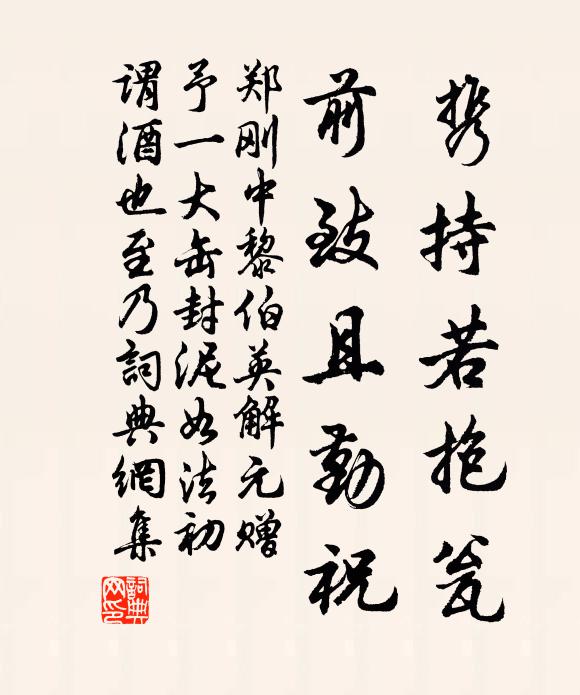 携持若抱瓮
前致且勤祝
郑刚中黎伯英解元赠
予一大缶封泥如法初
谓酒也至乃詞典網集
詞典网印